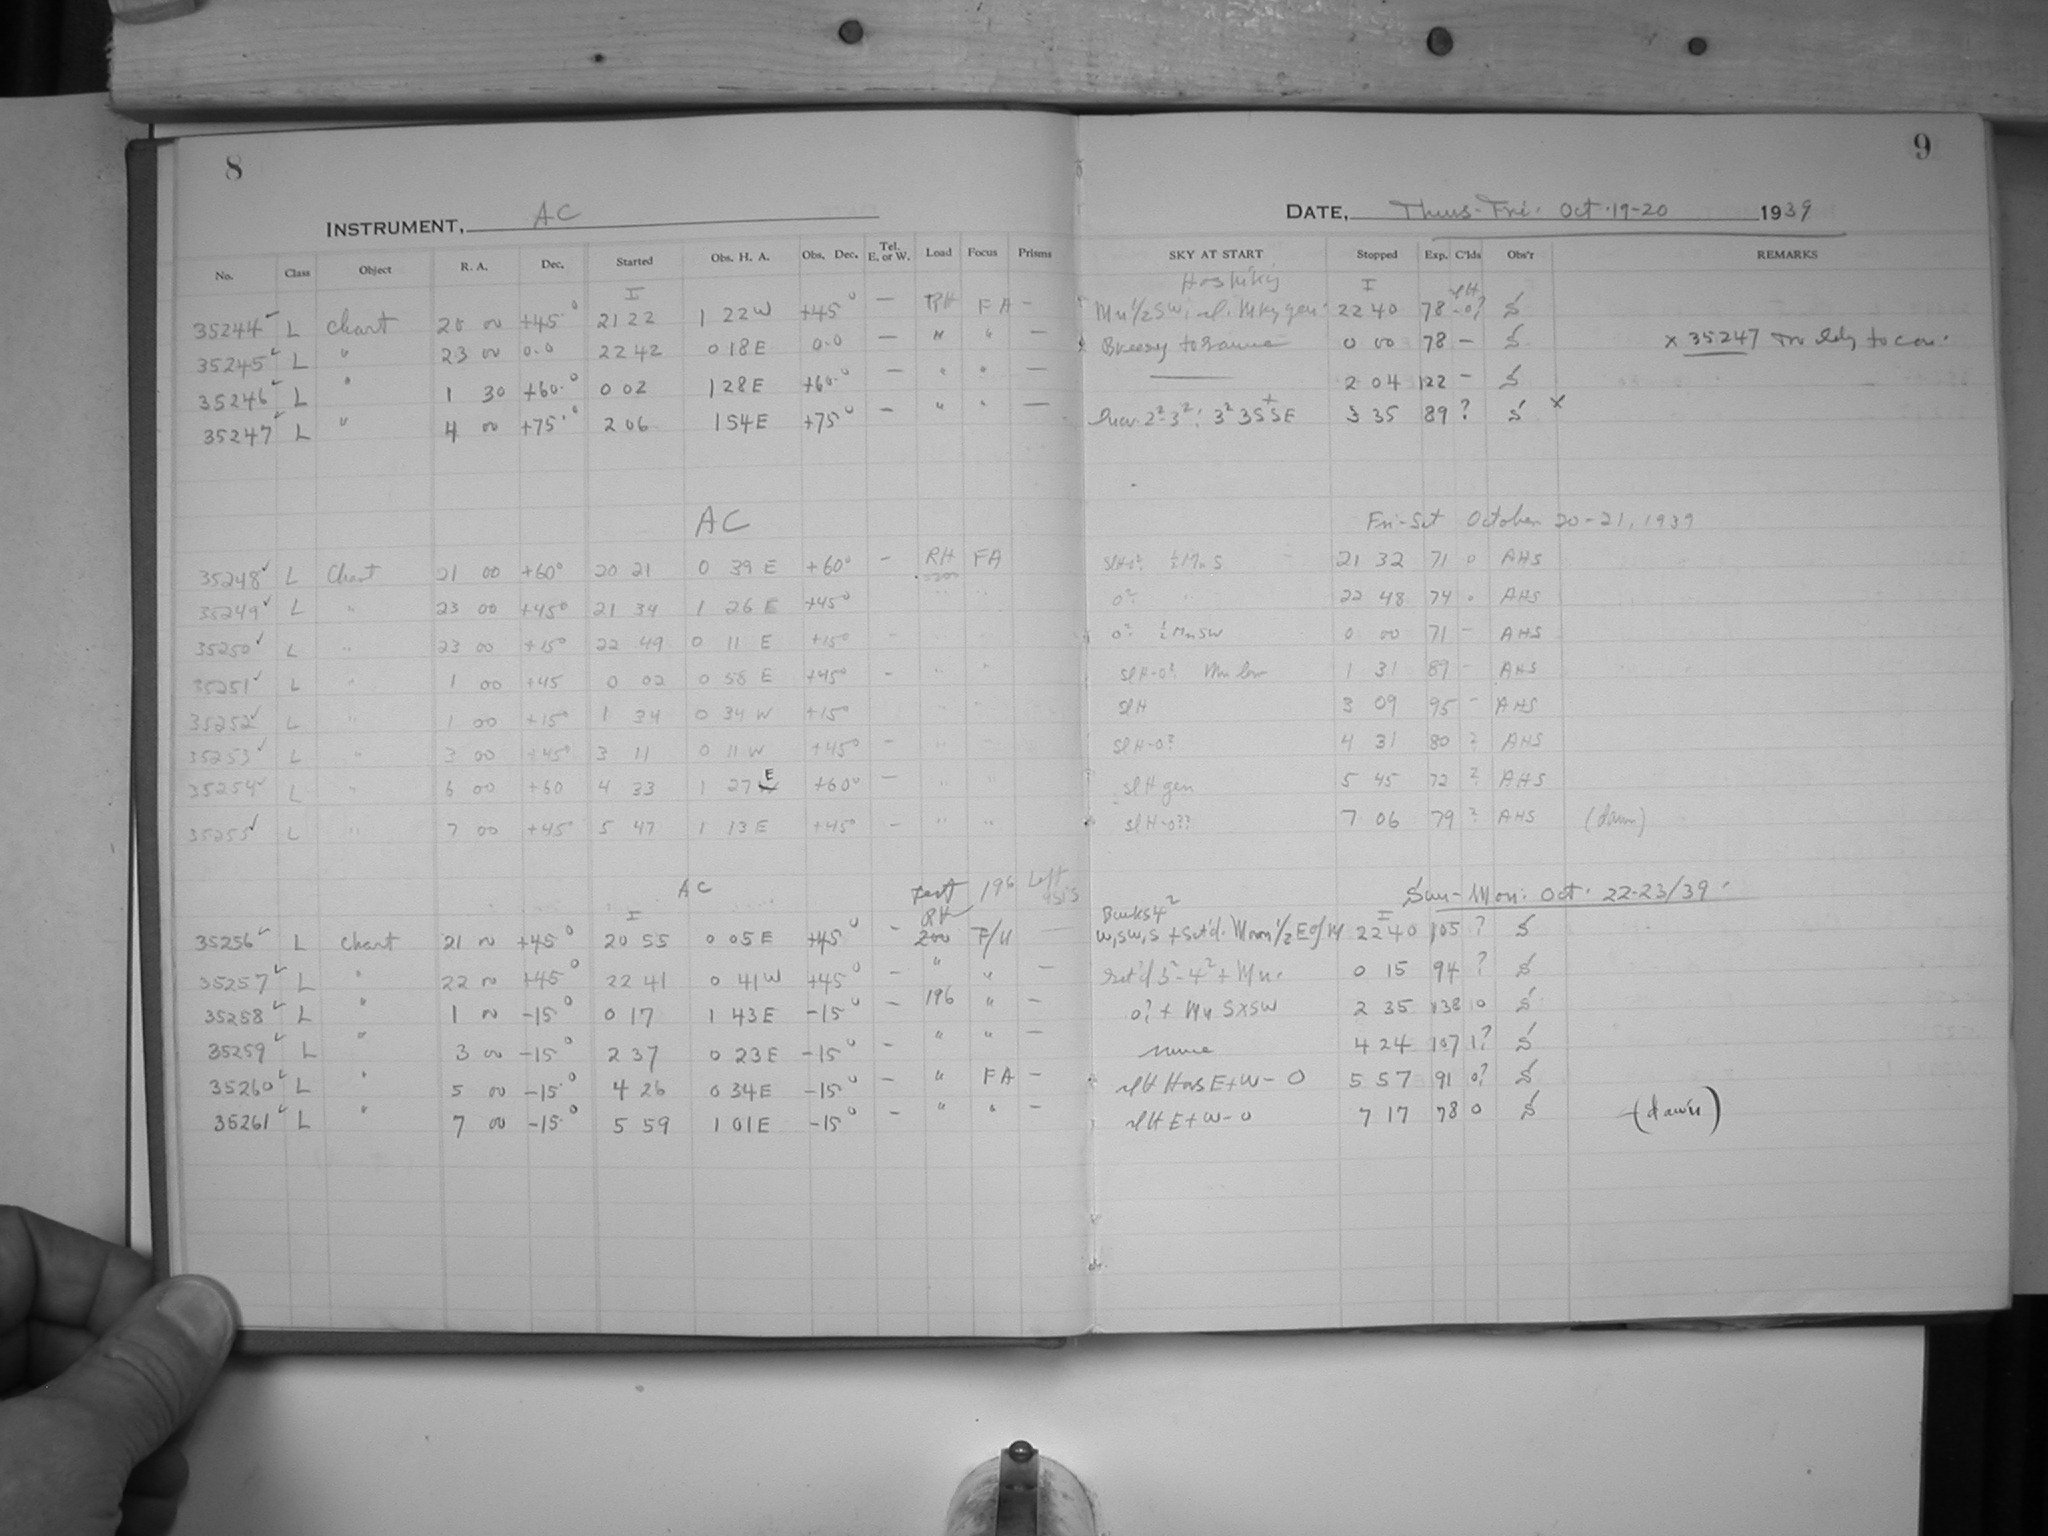 8
INSTRUMENT, AC
No. Class Object R. A. Dec. Started Obs. H. A. Obs. Dec. Tel. E. or W. Load Focus Prisms
35244 ✓ L Chart 20 00 +45° 21 22 1 22 W +45° — RH FA —
35245 ✓ L " 23 00 0.0 22 42 0 18 E 0.0 — " " —
35246 ✓ L " 1 30 +60° 0 02 1 28 E +60° — " " —
35247 ✓ L " 4 00 +75° 2 06 1 54 E +75° — " " —
AC
35248 ✓ L Chart 21 00 +60° 20 21 0 39 E +60° — RH FA
35249 ✓ L " 23 00 +45° 21 34 1 26 E +45° " "
35250 ✓ L " 23 00 +15° 22 49 0 11 E +15° - " "
35251 ✓ L " 1 00 +45 0 02 0 58 E +45° - " "
35252 ✓ L " 1 00 +15° 1 34 0 34 W +15° " "
35253 ✓ L " 3 00 +45° 3 11 0 11 W +45° - " "
35254 ✓ L " 6 00 +60 4 33 1 27 E +60° — " "
35255 ✓ L " 7 00 +45° 5 47 1 13 E +45° - " "
AC 196 Left
35256 ✓ L Chart 21 00 +45° 20 55 0 05 E +45° - RH 200 —
35257 ✓ L " 22 00 +45° 22 41 0 41 W +45° - " " —
35258 ✓ L " 1 00 -15° 0 17 1 43 E -15° - 196 " -
35259 ✓ L " 3 00 -15° 2 37 0 23 E -15° - " " —
35260 ✓ L " 5 00 -15° 4 26 0 34 E -15° - " FA -
35261 ✓ L " 7 00 -15° 5 59 1 01 E -15° - " " -
9
DATE, Thurs-Fri. Oct. 19-20 1939
SKY AT START Stopped Exp. C'lds Obs'r REMARKS
Mn 1/2 SW; 22 40 78 S
Breezy to same 0 00 78 — S x 35247
— 2 04 122 - S
3 35 89 ? S x
AC Fri-Sat October 20-21, 1939
slH-0? ½ Mn S 21 32 71 0 AHS
0? " 22 48 74 0 AHS
0? ½ Mn SW 0 00 71 - AHS
slH-0? Mn low 1 31 89 - AHS
slH 3 09 95 - AHS
slH-0? 4 31 80 ? AHS
slH gen 5 45 72 ? AHS
slH-0?? 7 06 79 ? AHS (dawn)
Sun-Mon. Oct. 22-23/39.
Banks 4²
W, SW, S + Sct'd. Moon 1/2 E of M 22 40 105 ? S
sct'd 3²-4² + Mn. 0 15 94 ? S
0? + Mn SxSW 2 35 138 0 S
same 4 24 107 1? S
slH Has E+W-0 5 57 91 0? S
slH E+W-0 7 17 78 0 S (dawn)